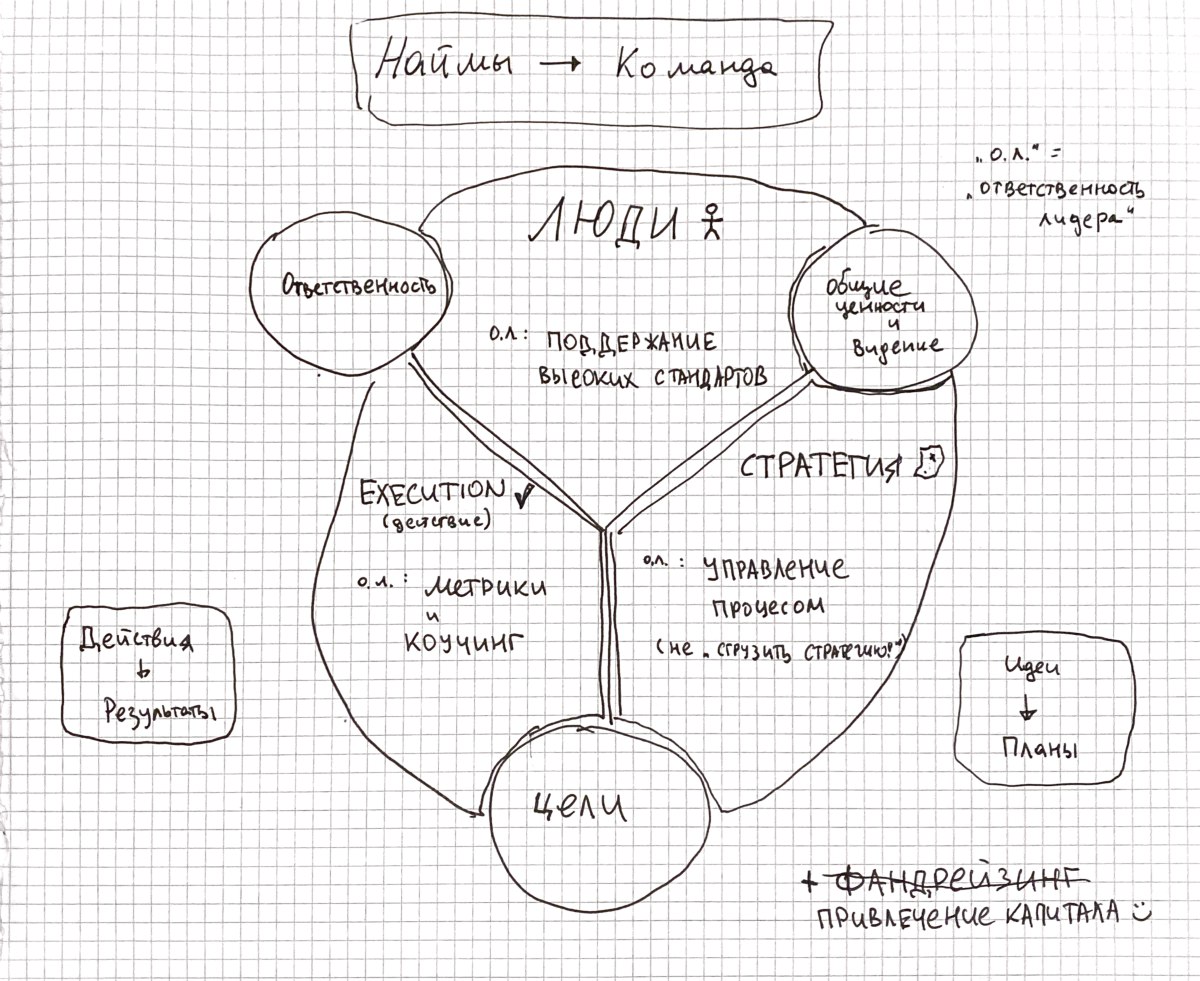 Наймы → Команда
„о.л." =
„ответственность
лидера"
ЛЮДИ
Ответственность
общие
ценности
и
видение
о.л.: ПОДДЕРЖАНИЕ
ВЫСОКИХ СТАНДАРТОВ
СТРАТЕГИЯ
EXECUTION ✓
(действие)
о.л.: УПРАВЛЕНИЕ
ПРОЦЕСОМ
(НЕ „СГРУЗИТЬ СТРАТЕГИЮ!")
о.л.: МЕТРИКИ
и
КОУЧИНГ
Действия
↓
Результаты
Идеи
↓
Планы
ЦЕЛИ
+ ФАНДРЕЙЗИНГ
ПРИВЛЕЧЕНИЕ КАПИТАЛА